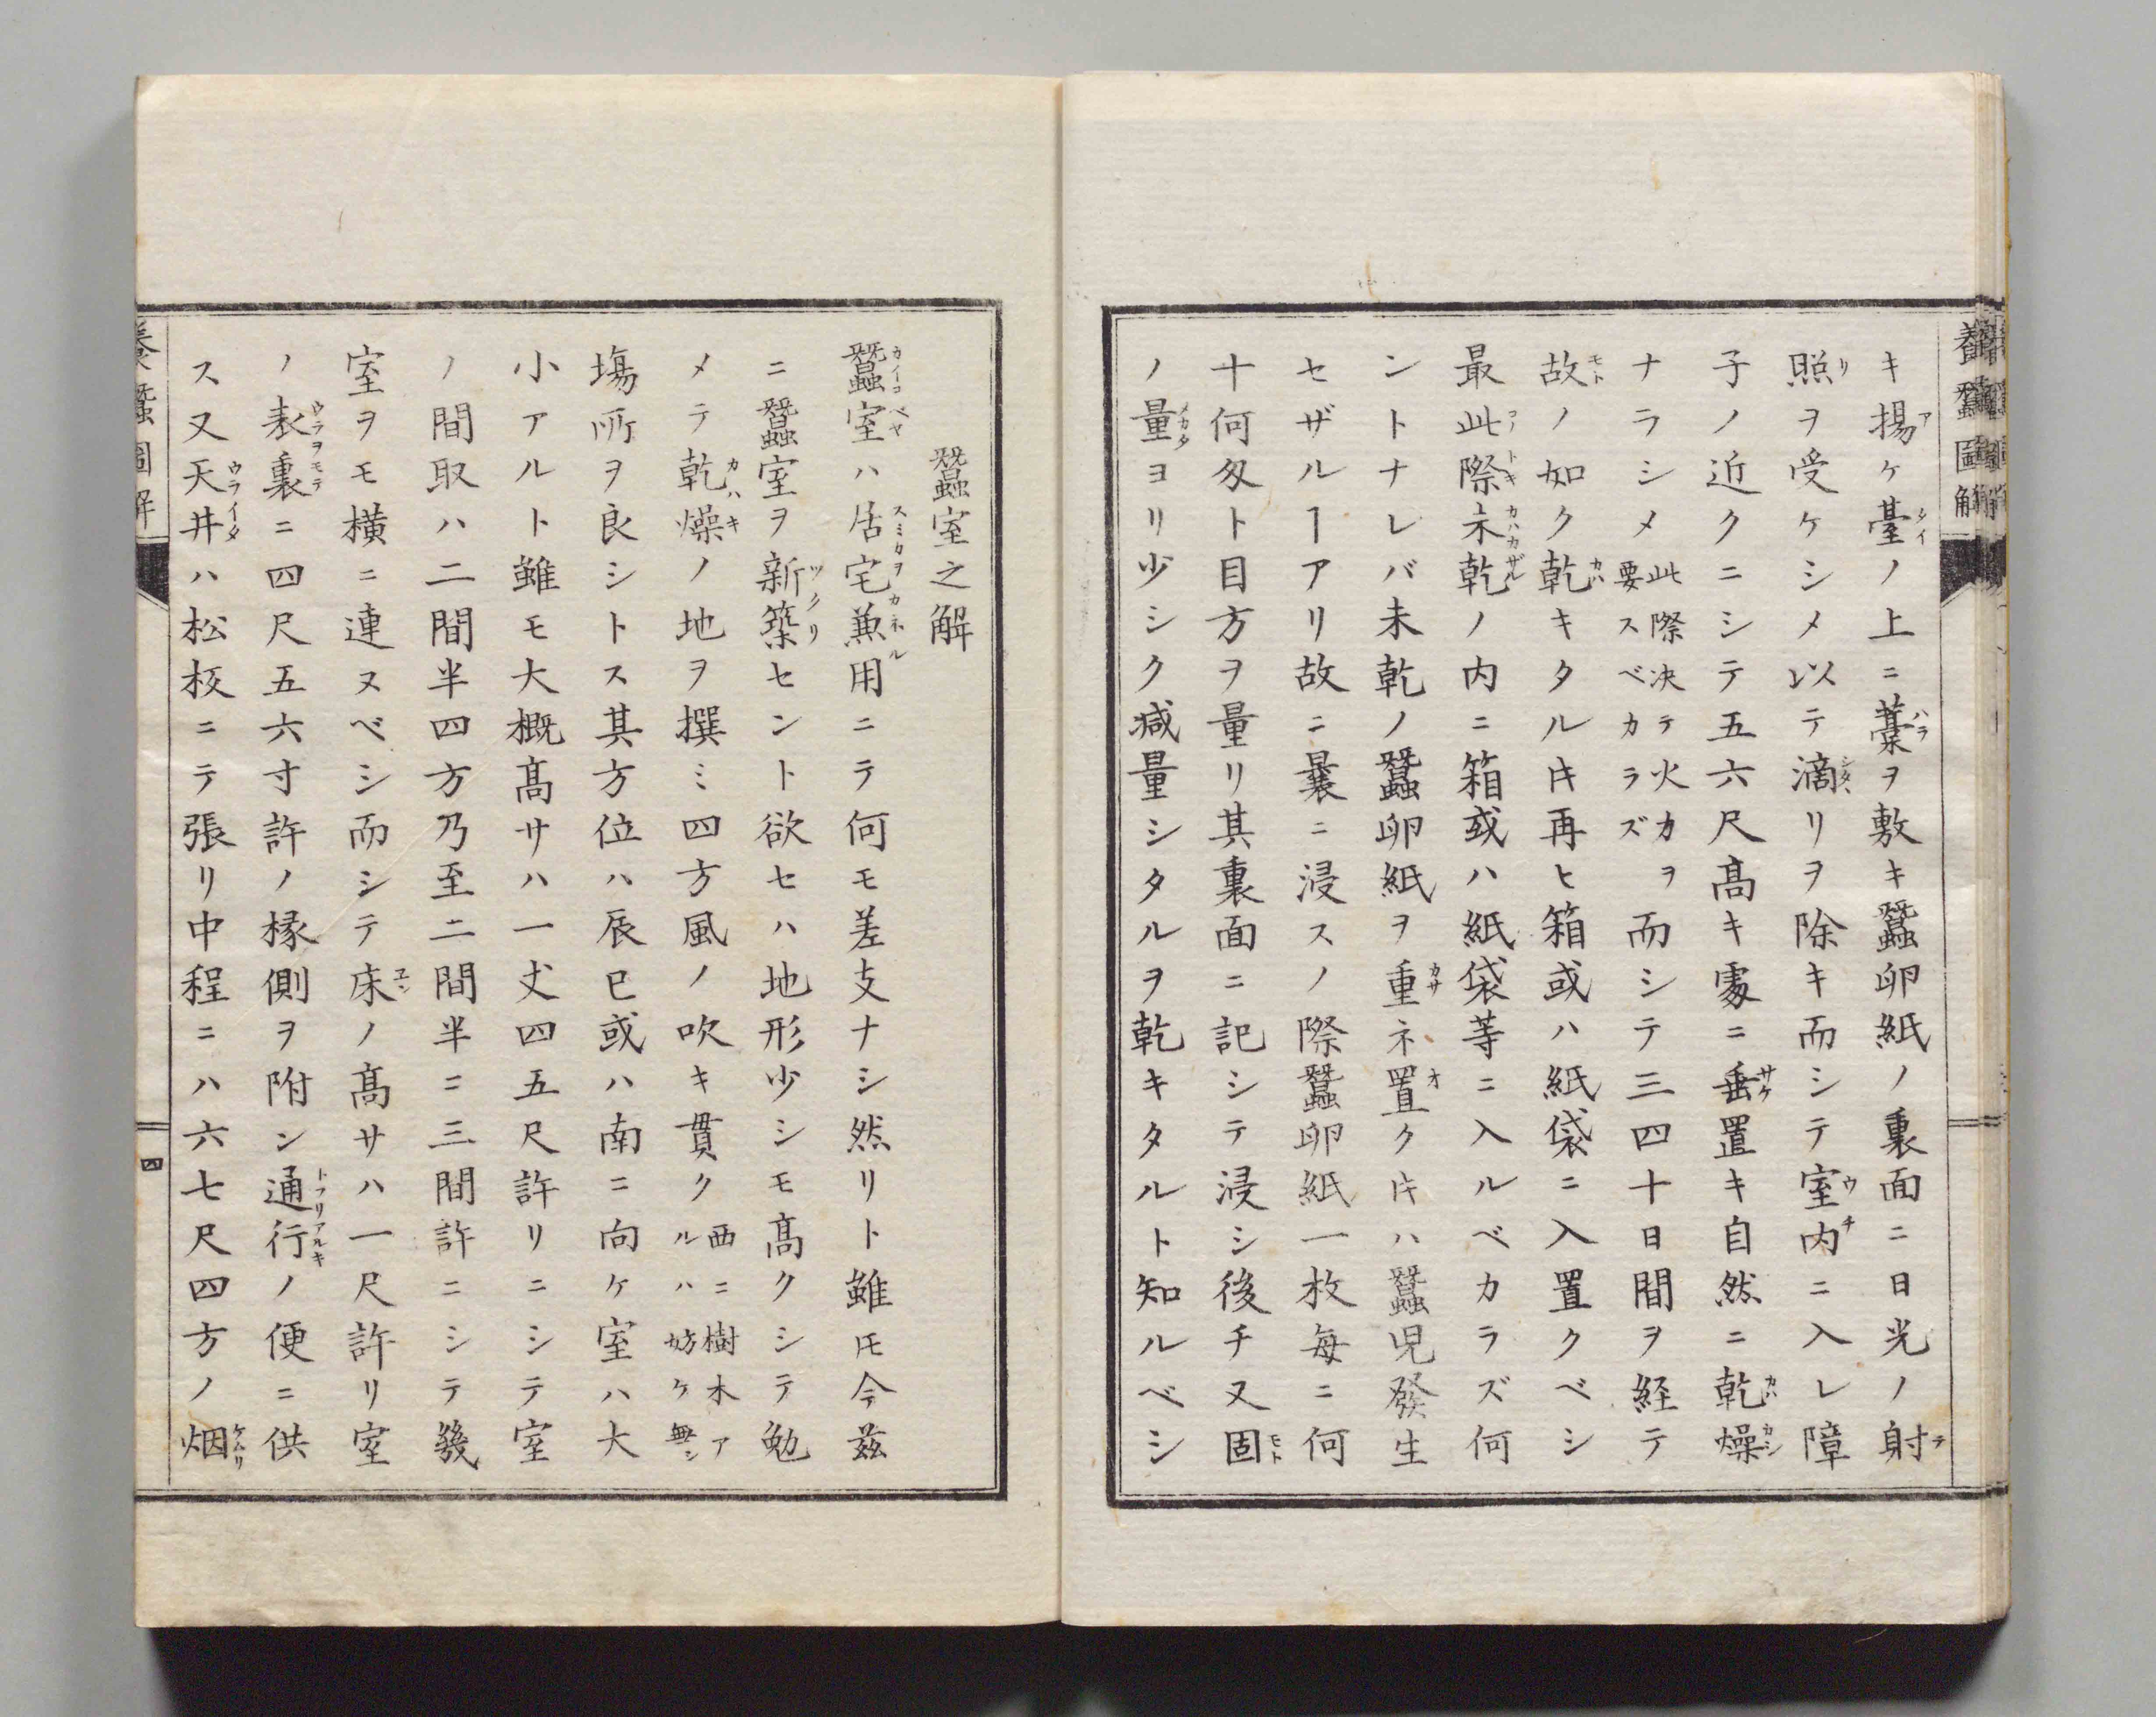 養蠶圖解
キ揚ケ臺ノ上ニ藁ヲ敷キ蠶卵紙ノ裏面ニ日光ノ射
照ヲ受ケシメ以テ滴リヲ除キ而シテ室内ニ入レ障
子ノ近クニシテ五六尺髙キ處ニ垂置キ自然ニ乾燥
ナラシメ此際决テ火力ヲ要スベカラズ而シテ三四十日間ヲ経テ
故ノ如ク乾キタル𪜈再ヒ箱或ハ紙袋ニ入置クベシ
最此際未乾ノ内ニ箱或ハ紙袋等ニ入ルベカラズ何
ントナレバ未乾ノ蠶卵紙ヲ重ネ置ク𪜈ハ蠶児發生
セザルヿアリ故ニ曩ニ浸スノ際蠶卵紙一枚毎ニ何
十何匁ト目方ヲ量リ其裏面ニ記シテ浸シ後チ又固
ノ量ヨリ少シク减量シタルヲ乾キタルト知ルベシ
蠶室之解
蠶室ハ居宅兼用ニテ何モ差支ナシ然リト雖𪜈今茲
ニ蠶室ヲ新築セント欲セハ地形少シモ髙クシテ勉
メテ乾燥ノ地ヲ撰ミ四方風ノ吹キ貫ク西ニ樹木アルハ妨ケ無シ
塲所ヲ良シトス其方位ハ辰巳或ハ南ニ向ケ室ハ大
小アルト雖モ大概髙サハ一丈四五尺許リニシテ室
ノ間取ハ二間半四方乃至二間半ニ三間許ニシテ幾
室ヲモ横ニ連ヌベシ而シテ床ノ髙サハ一尺許リ室
ノ表裏ニ四尺五六寸許ノ椽側ヲ附シ通行ノ便ニ供
ス又天井ハ松板ニテ張リ中程ニハ六七尺四方ノ烟
養蠶圖解
四